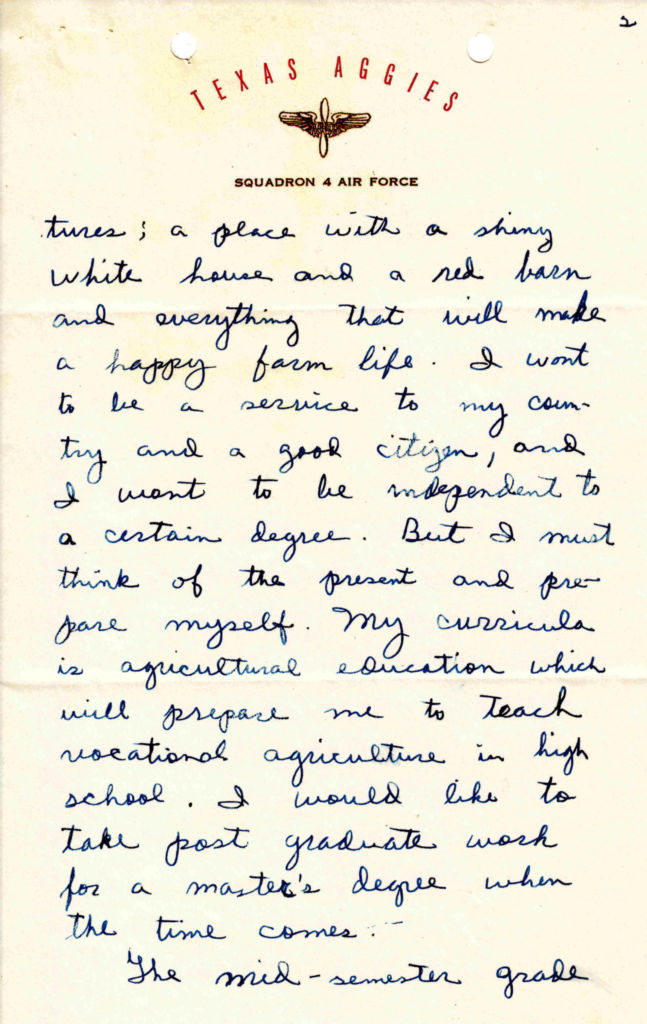 2
TEXAS AGGIES
SQUADRON 4 AIR FORCE
tures; a place with a shiny
white house and a red barn
and everything that will make
a happy farm life. I want
to be a service to my coun-
try and a good citizen, and
I want to be independent to
a certain degree. But I must
think of the present and pre-
pare myself. My curricula
is agricultural education which
will prepare me to teach
vocational agriculture in high
school. I would like to
take post graduate work
for a master's degree when
the time comes.
The mid-semester grade